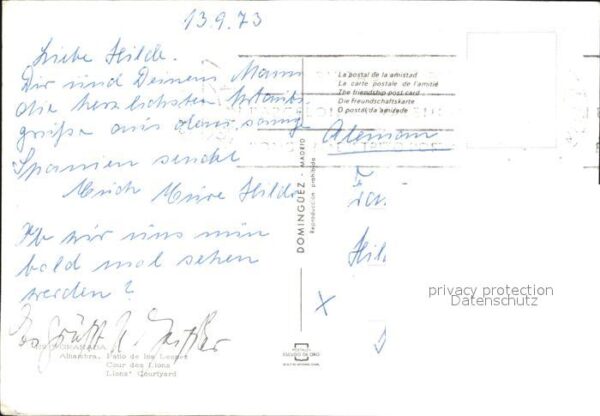 13.9.73
Liebe Hilde.
Dir und Deinem Mann
die herzlichsten Urlaubs
grüße aus dem sonnige
Spanien sendet
Euch Eure Hilde
Ob wir uns nun
bald mal sehen
werden?
Es grüßt
GRANADA
Alhambra, Patio de los Leones
Cour des Lions
Lions' Courtyard
DOMINGUEZ - MADRID
Reproduccion prohibida
La postal de la amistad
La carte postale de l'amitié
The friendship post card
Die Freundschaftskarte
O postal da amizade
Aleman
Hil
x
POSTALES
ESCUDO DE ORO
privacy protection
Datenschutz